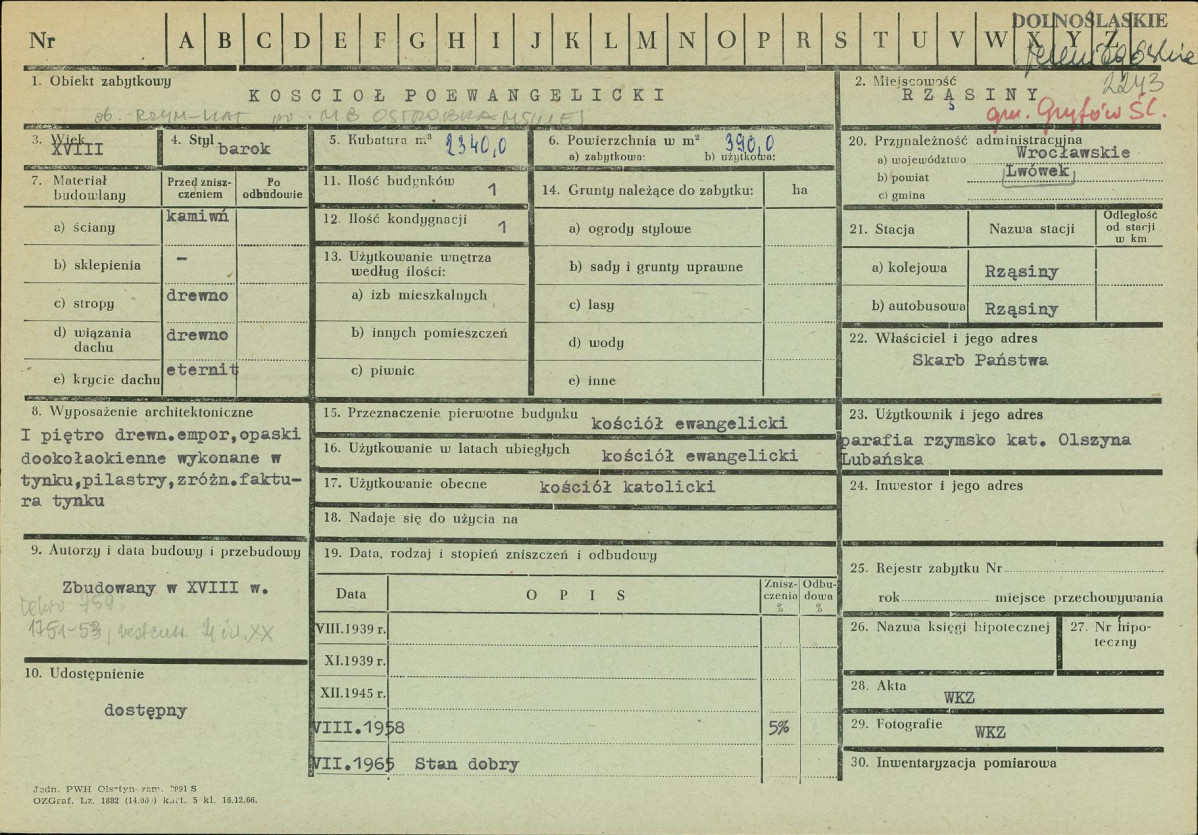 DOLNOŚLĄSKIE
Nr A B C D E F G H I J K L M N O P R S T U V W X Y Z
2243
1. Obiekt zabytkowy
KOSCIOŁ POEWANGELICKI
ob. RZYM-KAT
2. Miejscowość
RZĄSINY
gm. Gryfów Śl.
3. Wiek
XVIII
4. Styl
barok
5. Kubatura m³ 2340,0
6. Powierzchnia w m² 390,0
a) zabytkowa: b) użytkowa:
7. Materiał budowlany
Przed zniszczeniem
Po odbudowie
a) ściany kamiwń
b) sklepienia –
c) stropy drewno
d) wiązania dachu drewno
e) krycie dachu eternit
8. Wyposażenie architektoniczne
I piętro drewn.empor,opaski
dookołaokienne wykonane w
tynku,pilastry,zróżn.faktu-
ra tynku
9. Autorzy i data budowy i przebudowy
Zbudowany w XVIII w.
1751-53,
10. Udostępnienie
dostępny
11. Ilość budynków 1
12. Ilość kondygnacji 1
13. Użytkowanie wnętrza
według ilości:
a) izb mieszkalnych
b) innych pomieszczeń
c) piwnic
14. Grunty należące do zabytku: ha
a) ogrody stylowe
b) sady i grunty uprawne
c) lasy
d) wody
e) inne
15. Przeznaczenie pierwotne budynku kościół ewangelicki
16. Użytkowanie w latach ubiegłych kościół ewangelicki
17. Użytkowanie obecne kościół katolicki
18. Nadaje się do użycia na
19. Data, rodzaj i stopień zniszczeń i odbudowy
Data OPIS Znisz-czenia % Odbu-dowa %
VIII.1939 r.
XI.1939 r.
XII.1945 r.
VIII.1958 5%
VII.1965 Stan dobry
20. Przynależność administracyjna
a) województwo Wrocławskie
b) powiat Lwówek
c) gmina
21. Stacja Nazwa stacji Odległość od stacji w km
a) kolejowa Rząsiny
b) autobusowa Rząsiny
22. Właściciel i jego adres
Skarb Państwa
23. Użytkownik i jego adres
parafia rzymsko kat. Olszyna
Lubańska
24. Inwestor i jego adres
25. Rejestr zabytku Nr
rok miejsce przechowywania
26. Nazwa księgi hipotecznej
27. Nr hipo-
teczny
28. Akta
WKZ
29. Fotografie
WKZ
30. Inwentaryzacja pomiarowa
Jedn. PWH Olsztyn zam. 2091 S
OZGraf. Lz. 1882 (14.000) kart. 5 kl. 16.12.66.